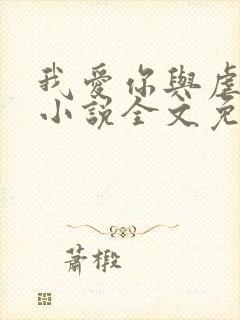 我愛你與虐
小說全文免
蕭椴